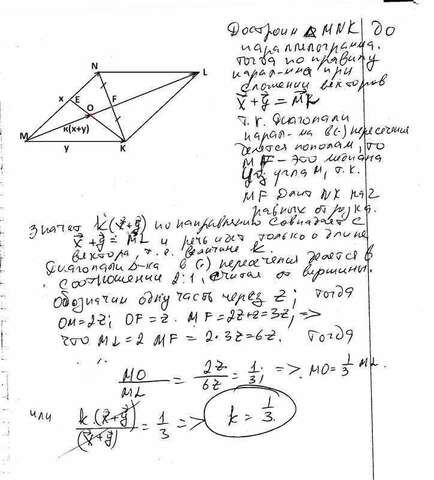 N
L
x
E
O
F
k(x+y)
M
y
K
Достроим △ MNK до
параллелограмма.
Тогда по правилу
парал-ма при
сложении векторов
x⃗ + y⃗ = M⃗L
т.к. диагонали
парал-ма в (·) пересечения
делятся пополам, то
MF – это медиана
угла M, т.к.
MF делит NK на 2
равных отрезка.
Значит k(x⃗+y⃗) по направлению совпадает с
x⃗ + y⃗ = M⃗L и речь идет только о длине
вектора, т.е. величине k.
в (·) пересечения делятся в
соотношении 2:1, считая от вершины.
Обозначим одну часть через z; тогда
OM=2z; OF=z. MF=2z+z=3z; =>
что ML=2 MF = 2·3z=6z. Тогда
MO/ML = 2z/6z = 1/3; => MO=1/3 ML.
или k·(x⃗+y⃗)/(x⃗+y⃗) = 1/3 => k = 1/3.